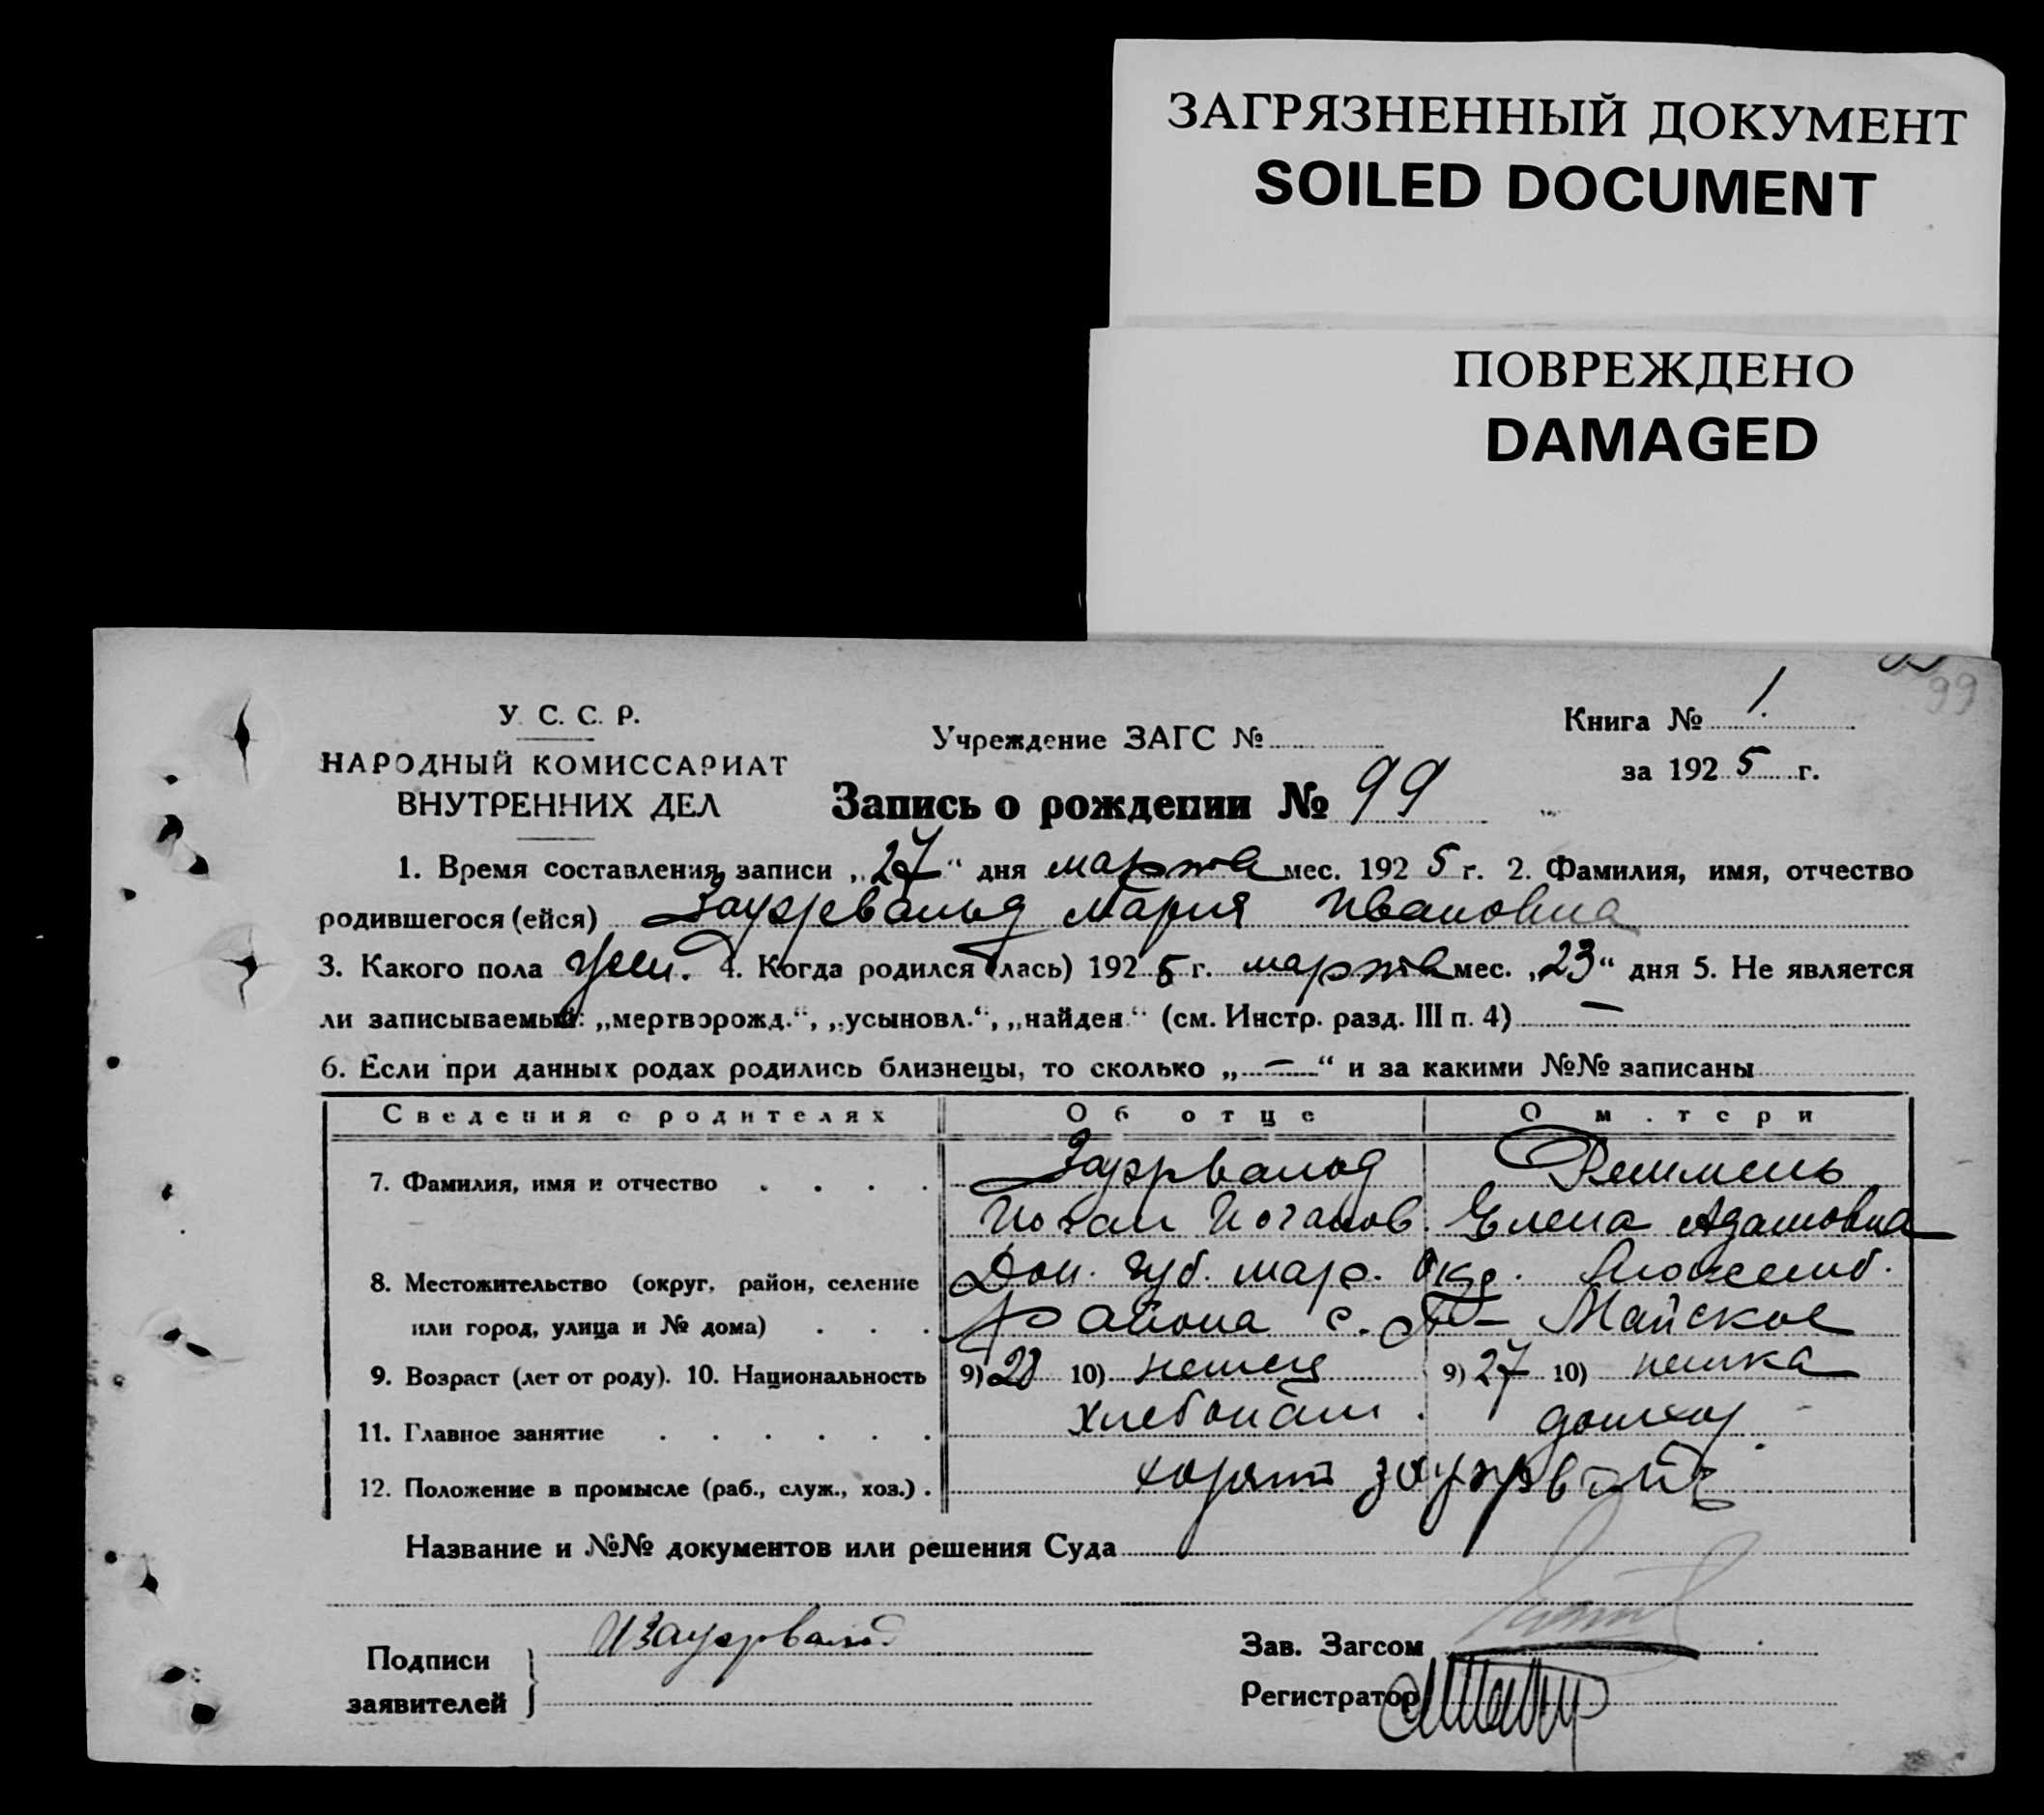 ЗАГРЯЗНЕННЫЙ ДОКУМЕНТ
SOILED DOCUMENT
ПОВРЕЖДЕНО
DAMAGED
99
У. С. С. Р.
НАРОДНЫЙ КОМИССАРИАТ
ВНУТРЕННИХ ДЕЛ
Учреждение ЗАГС №
Книга № 1.
за 1925 г.
Запись о рождении № 99
1. Время составления записи „27“ дня марта мес. 1925 г. 2. Фамилия, имя, отчество
родившегося (ейся) Зауэрвальд Мария Ивановна
3. Какого пола жен. 4. Когда родился (лась) 1925 г. марта мес. „23“ дня 5. Не является
ли записываемый: „мертворожд.“, „усыновл.“, „найден.“ (см. Инстр. разд. III п. 4) —
6. Если при данных родах родились близнецы, то сколько „—“ и за какими №№ записаны
Сведения о родителях Об отце О м.тери
7. Фамилия, имя и отчество . . . . Зауэрвальд
Иоган Иоганов. Елена Адамовна
8. Местожительство (округ, район, селение Дон. губ. мар. Окр. Люксемб.
или город, улица и № дома) . . . района с. Майское
9. Возраст (лет от роду). 10. Национальность 9) 28 10) немец 9) 27 10) немка
11. Главное занятие . . . . . . хлебопаш. домхоз.
12. Положение в промысле (раб., служ., хоз.) .
Название и №№ документов или решения Суда
Подписи заявителей } И Зауэрвальд
Зав. Загсом
Регистратор